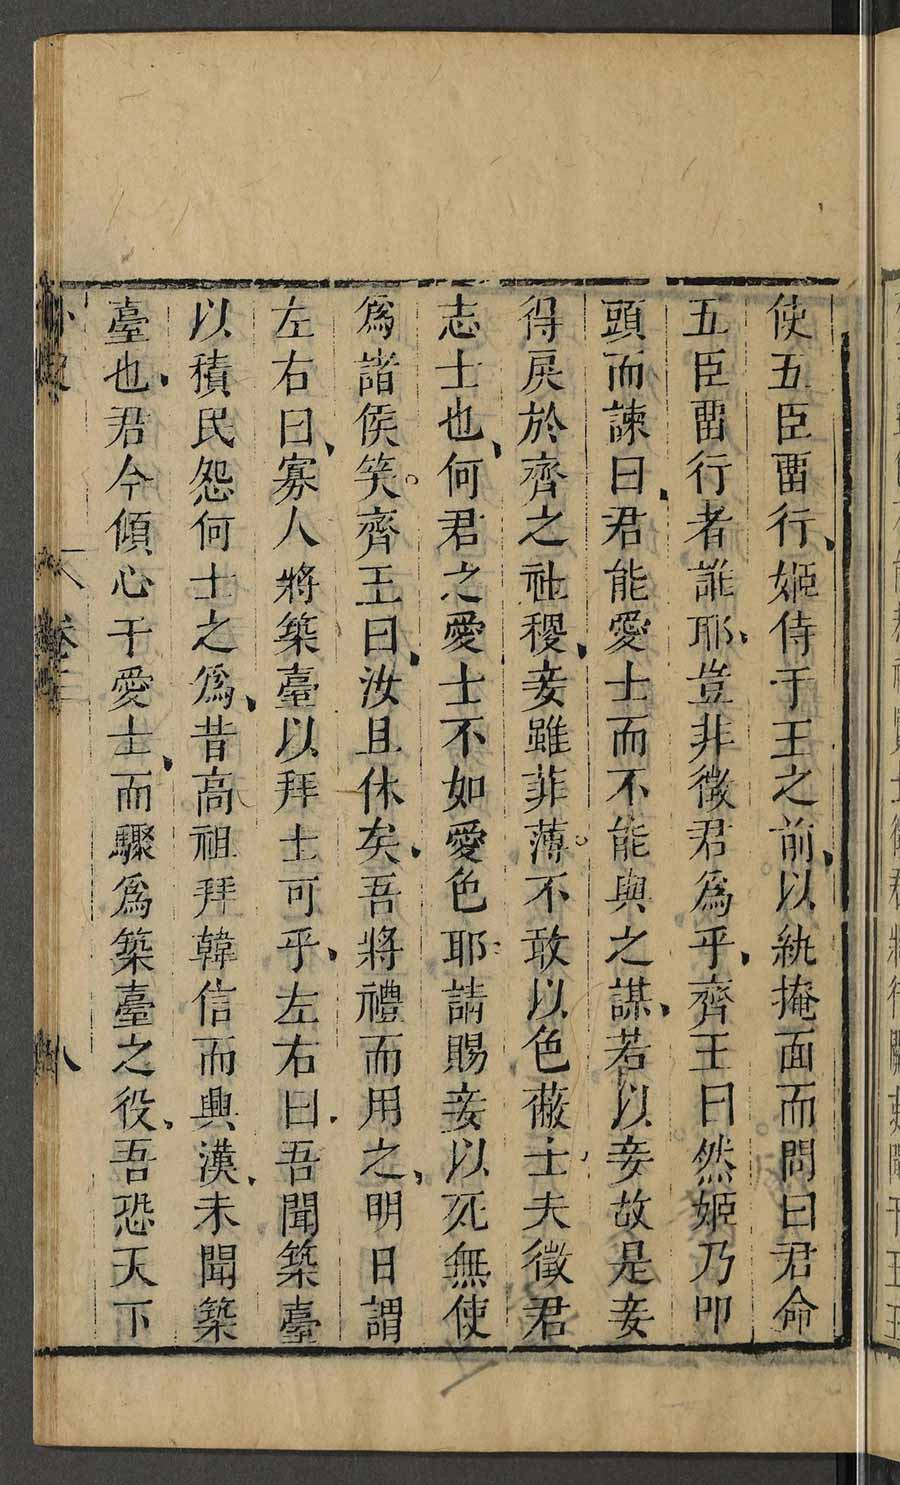 使五臣畱行、姬侍于王之前、以紈掩面而問曰君命
五臣畱行者誰耶、豈非徵君爲乎、齊王曰然姬乃叩
頭而諫曰、君能愛士而不能與之謀、若以妾故是妾
得戾於齊之社稷、妾雖菲薄。不敢以色蔽士、夫徵君
志士也、何君之愛士不如愛色耶、請賜妾以死無使
爲諸侯笑。齊王曰、汝且休矣、吾將禮而用之、明日謂
左右曰、寡人將築臺以拜士可乎、左右曰、吾聞築臺
以積民怨何士之爲、昔高祖拜韓信而興漢、未聞築
臺也、君今傾心于愛士、而驟爲築臺之役、吾恐天下
卷三
八